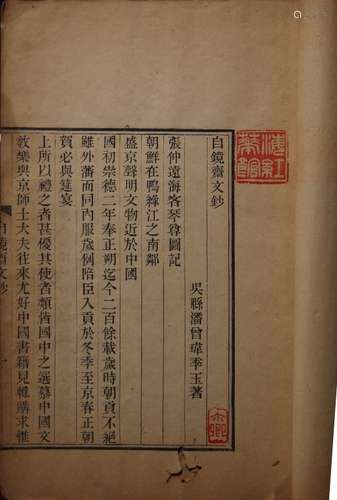 自鏡齋文鈔
吳縣潘曾瑋季玉著
張仲遠海客琴尊圖記
朝鮮在鴨綠江之南鄰
盛京聲明文物近於中國
國初崇德二年奉正朔迄今二百餘載歲時朝貢不絕
雖外藩而同內服歲例陪臣入貢於冬季至京春正朝
賀必與筵宴
上所以禮之者甚優其使者類皆國中之選慕中國文
教樂與京師士大夫往來尤好中國書籍見輒購求惟
自鏡齋文鈔
一